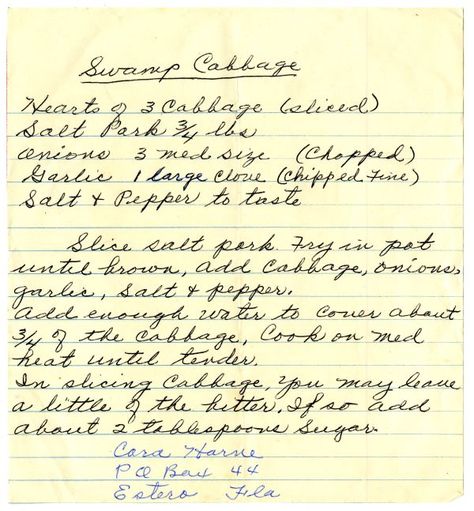 Swamp Cabbage
Hearts of 3 Cabbage (sliced)
Salt Pork 3/4 lbs
Onions 3 med size (Chopped)
Garlic 1 large Clove (Chipped Fine)
Salt & Pepper to taste
Slice salt pork. Fry in pot
until brown, add Cabbage, onions,
garlic, salt & pepper.
Add enough water to cover about
3/4 of the cabbage, Cook on med
heat until tender.
In slicing Cabbage, you may leave
a little of the bitter, If so add
about 2 tablespoons sugar.
Cora Horne
P O Box 44
Estero Fla